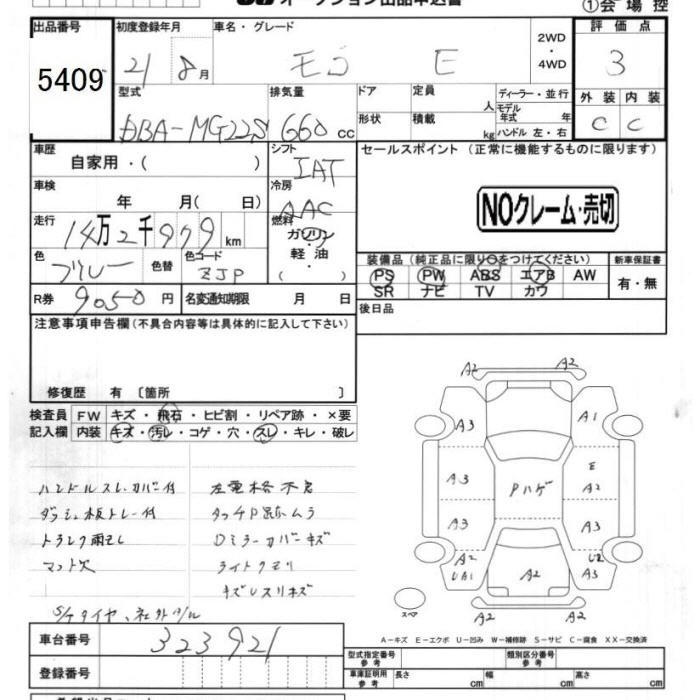 オークション出品申込書
①会場控
出品番号 5409
初度登録年月 21 8月
車名・グレード モコ E
2WD・4WD
評価点 3
型式 DBA-MG22S
排気量 660 cc
ドア
形状
定員 人
積載 kg
ディーラー・並行
モデル年式 年
ハンドル 左・右
外装 内装
C C
車歴 自家用・( )
シフト IAT
セールスポイント (正常に機能するものに限ります)
車検 年 月( 日)
冷房 AAC
NOクレーム・売切
走行 14万2千979km
燃料 ガソリン・軽油・( )
色 ブルー 色替 色コード ZJP
装備品 (純正品に限り○をつけてください)
新車保証書 有・無
PS PW ABS エアB AW
SR ナビ TV カワ
R券 9050円 名変通知期限 月 日
後日品
注意事項申告欄 (不具合内容等は具体的に記入して下さい)
修復歴 有 〔箇所 〕
検査員記入欄
FW キズ・飛石・ヒビ割・リペア跡・×要
内装 キズ・汚レ・コゲ・穴・スレ・キレ・破レ
ハンドルスレ.カバー付 左電格不良
ダッシュ板トレー付 タッチP跡.ムラ
トランク雨ジミ Dミラーカバーキズ
マット欠 ライトクモリ
キズ.レスリキズ
S/Tタイヤ、社外ホイル
A2 A2
A3 A1
A3 Pハゲ E A2
A3 A3
A2 UA1 A2 U2 A3
A2 A2
スペア
A－キズ E－エクボ U－凹み W－補修跡 S－サビ C－腐食 XX－交換済
車台番号 323921
型式指定番号 参考
類別区分番号 参考
登録番号
車庫証明用 参考 長さ cm 幅 cm 高さ cm